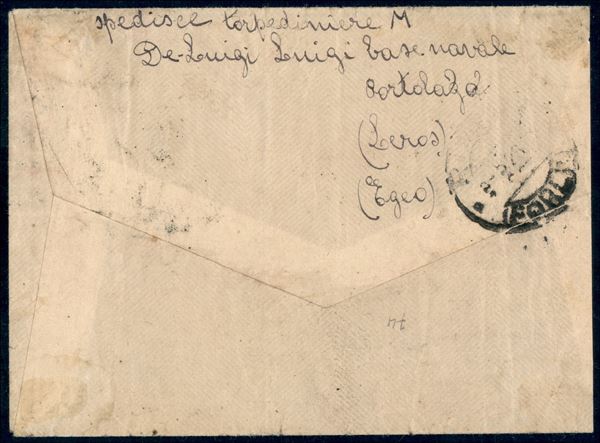 spedisce torpediniere M
De-Luigi Luigi base navale
Portolago
(Leros)
(Egeo)
FORLI